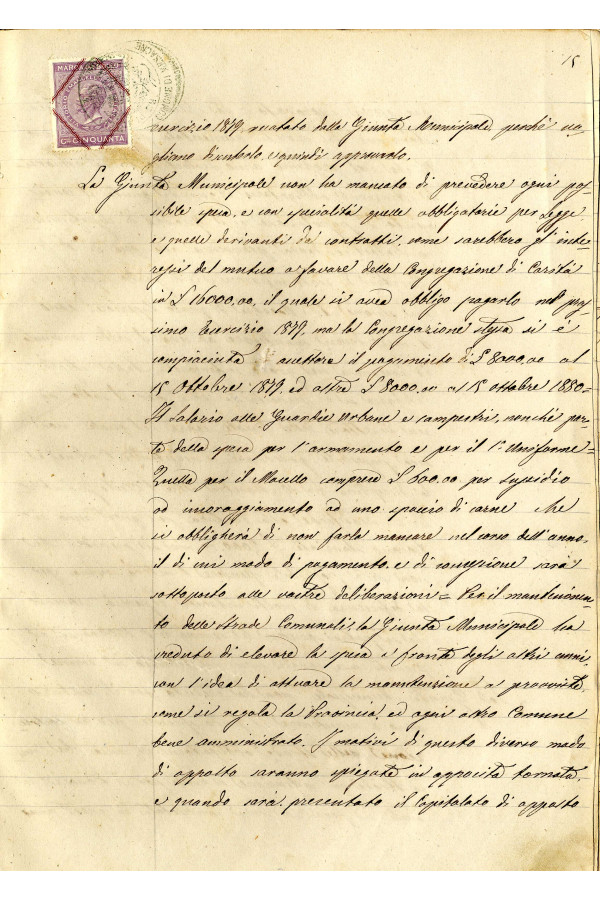 15
MARCA DA BOLLO
Cmi CINQUANTA
COMUNE DI
esercizio 1879, redatto dalla Giunta Municipale perchè vo-
gliamo discuterlo, e quindi approvarlo.
La Giunta Municipale non ha mancato di prevedere ogni pos-
sibile spesa, e con specialità quelle obbligatorie per Legge,
e quelle derivanti da contratti, come sarebbero gl'inte-
ressi del mutuo a favore della Congregazione di Carità
in £ 16000,00, il quale si avea obbligo pagarlo nel pros-
simo Esercizio 1879, ma la Congregazione stessa si è
compiaciuta accettare il pagamento di £ 8000,00 al
15 Ottobre 1879, ed altre £ 8000,00 al 15 ottobre 1880=
Il Salario alle Guardie Urbane e campestri, nonchè par-
te della spesa per l'armamento e per il 1.° Uniforme=
Quella per il Macello comprese £ 600,00 per sussidio
ad incoraggiamento ad uno spaccio di carne che
si obbligherà di non farla mancare nel corso dell'anno,
il di cui modo di pagamento, e di concessione sarà
sottoposto alle vostre deliberazioni= Per il mantenimen-
to delle Strade Comunali, la Giunta Municipale ha
creduto di elevare la spesa a fronte degli altri anni,
con l'idea di attuare la manutenzione a provvista,
come si regola la Provincia, ed ogni altro Comune
bene amministrato. I motivi di questo diverso modo
di appalto saranno spiegati in apposita tornata,
e quando sarà presentato il Capitolato di appalto